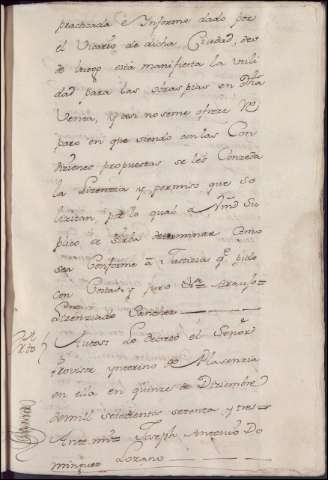 practicada e Informe dado por
el Vicario de dicha Ciudad, des
de luego está manifiesta la utili
dad para las obras pias en dha
Venta, y asi no se me ofrece Re
paro en que siendo con las Con
diziones propuestas se les Conzeda
la Lizenzia y permiso que So
lizitan, por lo qual a Vmd Su
plico se sirba determinar Como
sea Conforme à Justicia qe pido
con Costas, y juro
Lizenziado Sanchez
Auto Autos: Lo decretò el Señor
Provisor ynterino de Plasenzia
en ella en quinze de Diziembre
de mil setecientos setenta y tres
Ante mi: Joseph Antonio Do
minguez Lozano